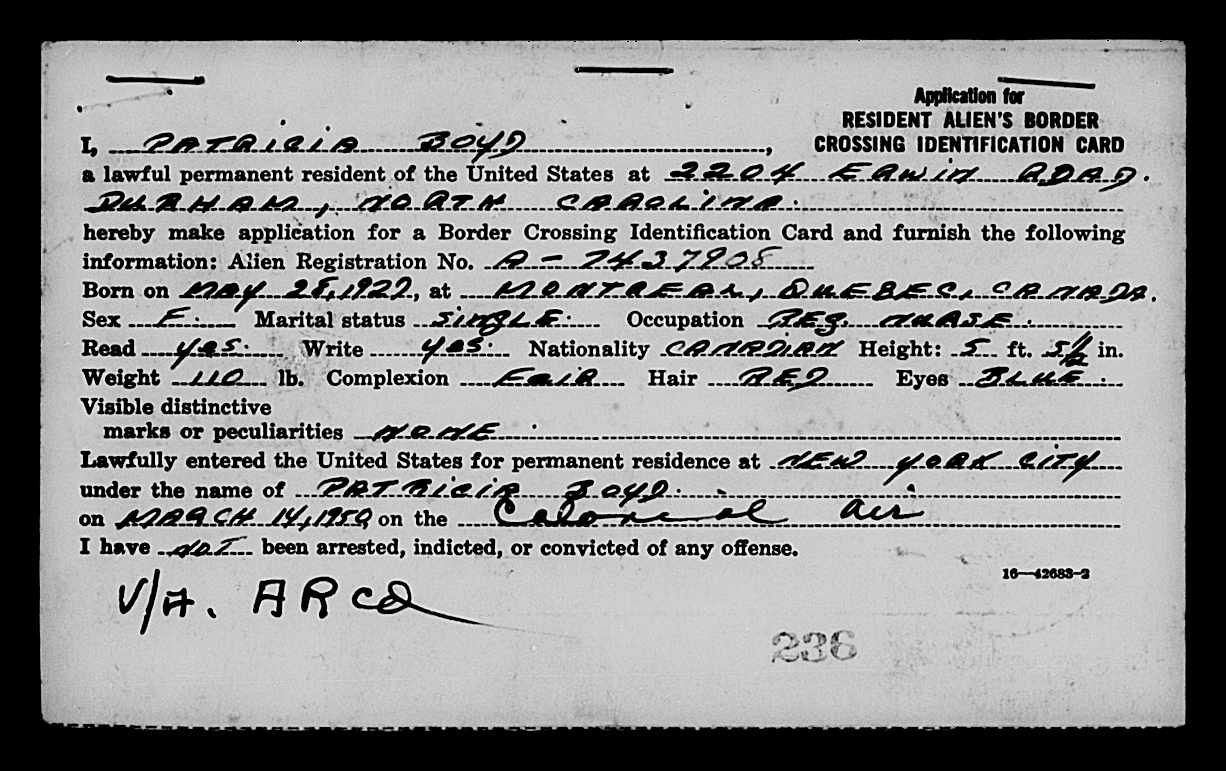 Application for
RESIDENT ALIEN'S BORDER
CROSSING IDENTIFICATION CARD
I, PATRICIA BOYD,
a lawful permanent resident of the United States at 2204 ERWIN ROAD.
DURHAM, NORTH CAROLINA.
hereby make application for a Border Crossing Identification Card and furnish the following
information: Alien Registration No. A-7437908
Born on MAY 28, 1927, at MONTREAL, QUEBEC, CANADA.
Sex F. Marital status SINGLE. Occupation REG. NURSE.
Read yes. Write yes. Nationality CANADIAN Height: 5 ft. 5 1/2 in.
Weight 110 lb. Complexion FAIR Hair RED Eyes BLUE.
Visible distinctive
marks or peculiarities NONE.
Lawfully entered the United States for permanent residence at NEW YORK CITY
under the name of PATRICIA BOYD.
on MARCH 14, 1950 on the Colonial Air
I have NOT been arrested, indicted, or convicted of any offense.
16—42683-2
V/A. ARCD
236